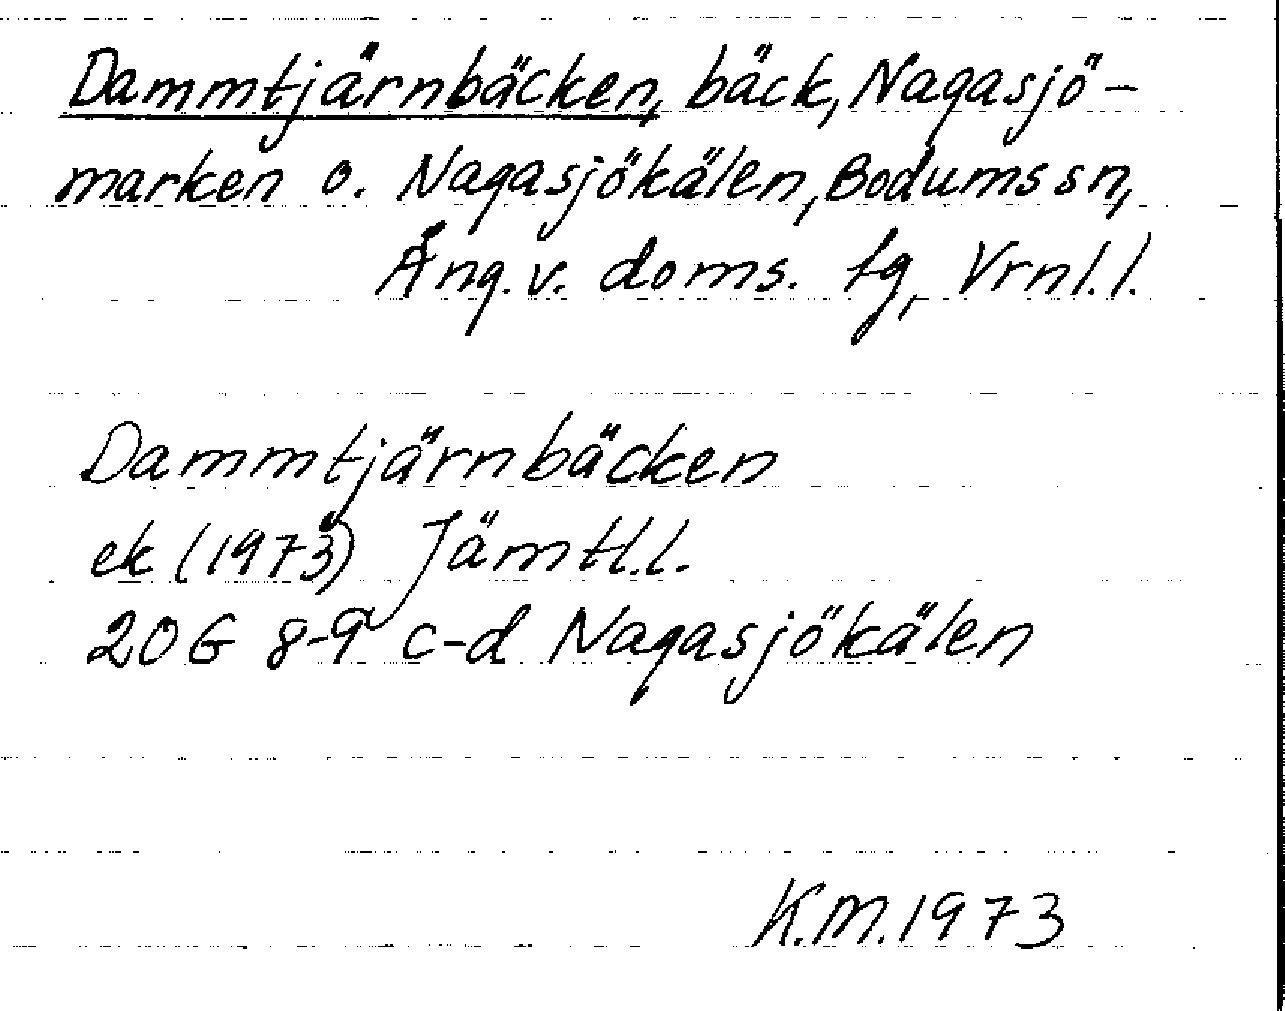 Dammtjärnbäcken, bäck, Nagasjö-
marken o. Nagasjökälen, Bodums sn,
Ång. v. doms. tg, Vrnl. l.
Dammtjärnbäcken
ek (1973) Jämtl. l.
20 G 8-9 c-d Nagasjökälen
K.M. 1973